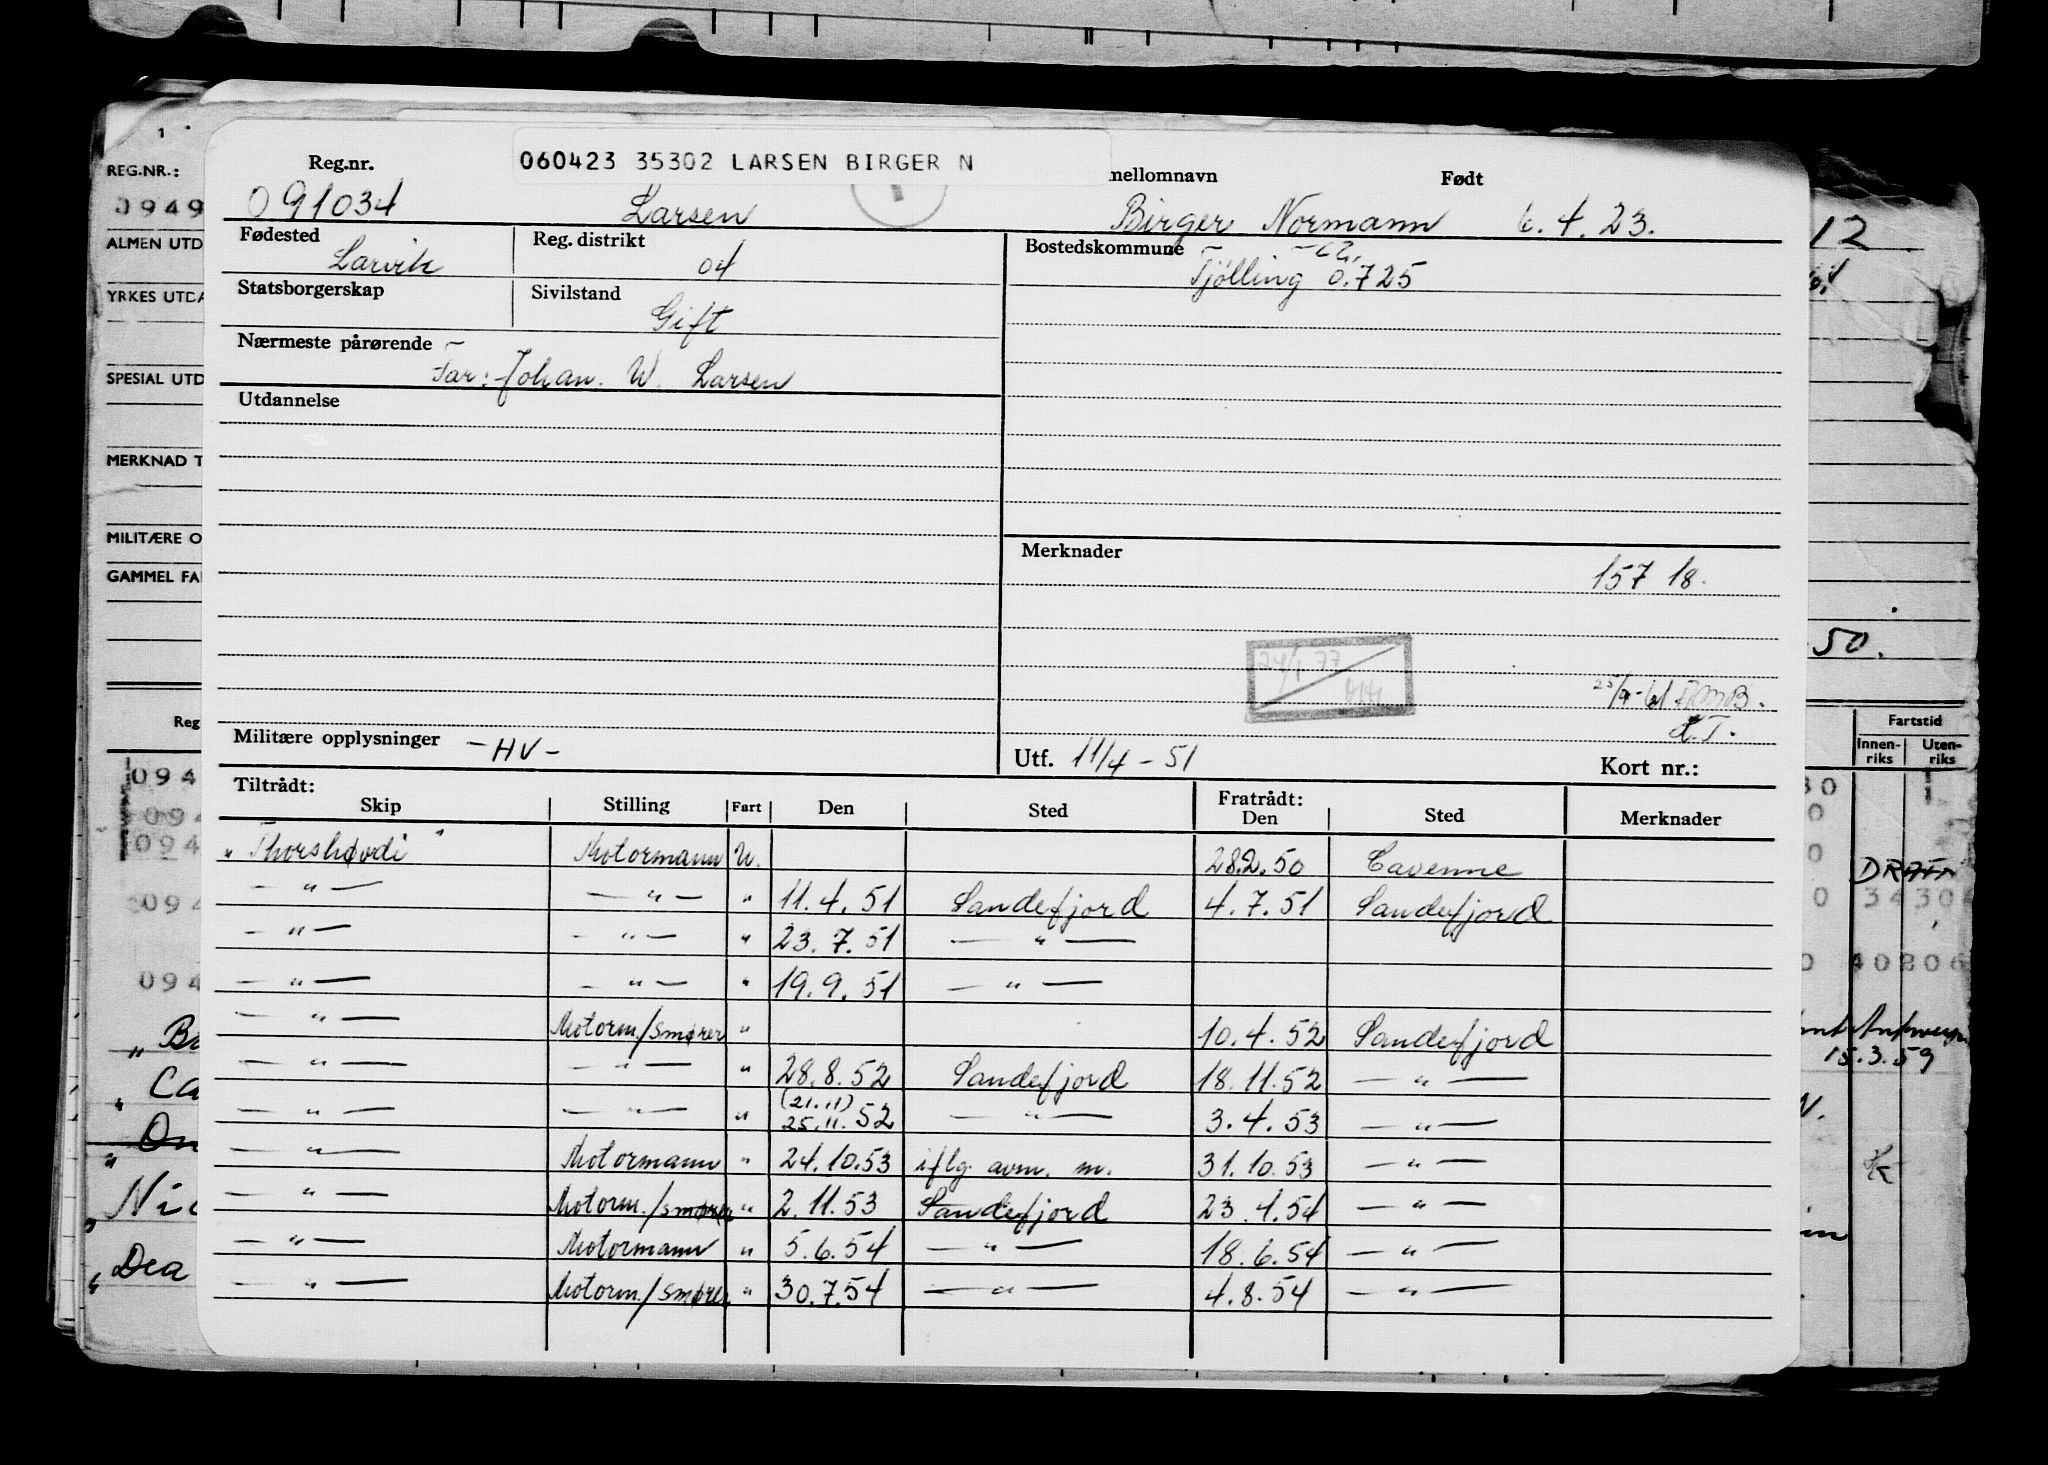 060423 35302 LARSEN BIRGER N
Reg.nr. mellomnavn Født
091034 Larsen Birger Normann 6.4.23.
Fødested Larvik Reg. distrikt 04 Bostedskommune Tjølling 0.725
Statsborgerskap Sivilstand Gift
Nærmeste pårørende Far: Johan. W. Larsen
Utdannelse
Merknader
157 18.
24/1 77
25/9-61
H.T.
Militære opplysninger -HV- Utf. 11/4 - 51 Kort nr.:
Tiltrådt: Fratrådt:
Skip Stilling Fart Den Sted Den Sted Merknader
"Thorshøvdi" Motormann U. 28.2.50 Cavenne
— " — — " — " 11.4.51 Sandefjord 4.7.51 Sandefjord
— " — — " — " 23.7.51 — " —
— " — — " — " 19.9.51 — " —
— " — Motorm/smører " 10.4.52 Sandefjord
— " — — " — " 28.8.52 Sandefjord 18.11.52 — " —
— " — — " — " (21.11) 25.11.52 — " — 3.4.53 — " —
— " — Motormann " 24.10.53 iflg. avm. m. 31.10.53 — " —
— " — Motorm./smører " 2.11.53 Sandefjord 23.4.54 — " —
— " — Motormann " 5.6.54 — " — 18.6.54 — " —
— " — Motorm./smører " 30.7.54 — " — 4.8.54 — " —
1
REG.NR.:
0949
ALMEN UTD
YRKES UTDA
SPESIAL UTD
MERKNAD T
MILITÆRE O
GAMMEL FA
Reg
094
094
094
094
094
"Ba
"Ca
"On
"Nic
"Dea
12
50.
Fartstid
Innen-riks Uten-riks
30
0
0
0
0 3430
0 40206
15.3.59